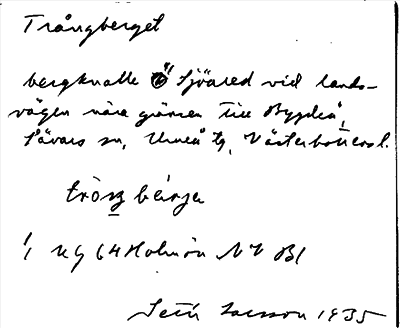 Trångberget
bergknalle Ö Sjöared vid lands-
vägen nära gränsen till Bygdeå,
Sävars sn, Umeå tg, Västerbottens l.
trɔ̀ŋ bærja
1/1 Kg 64 Holmön NV B1
1935